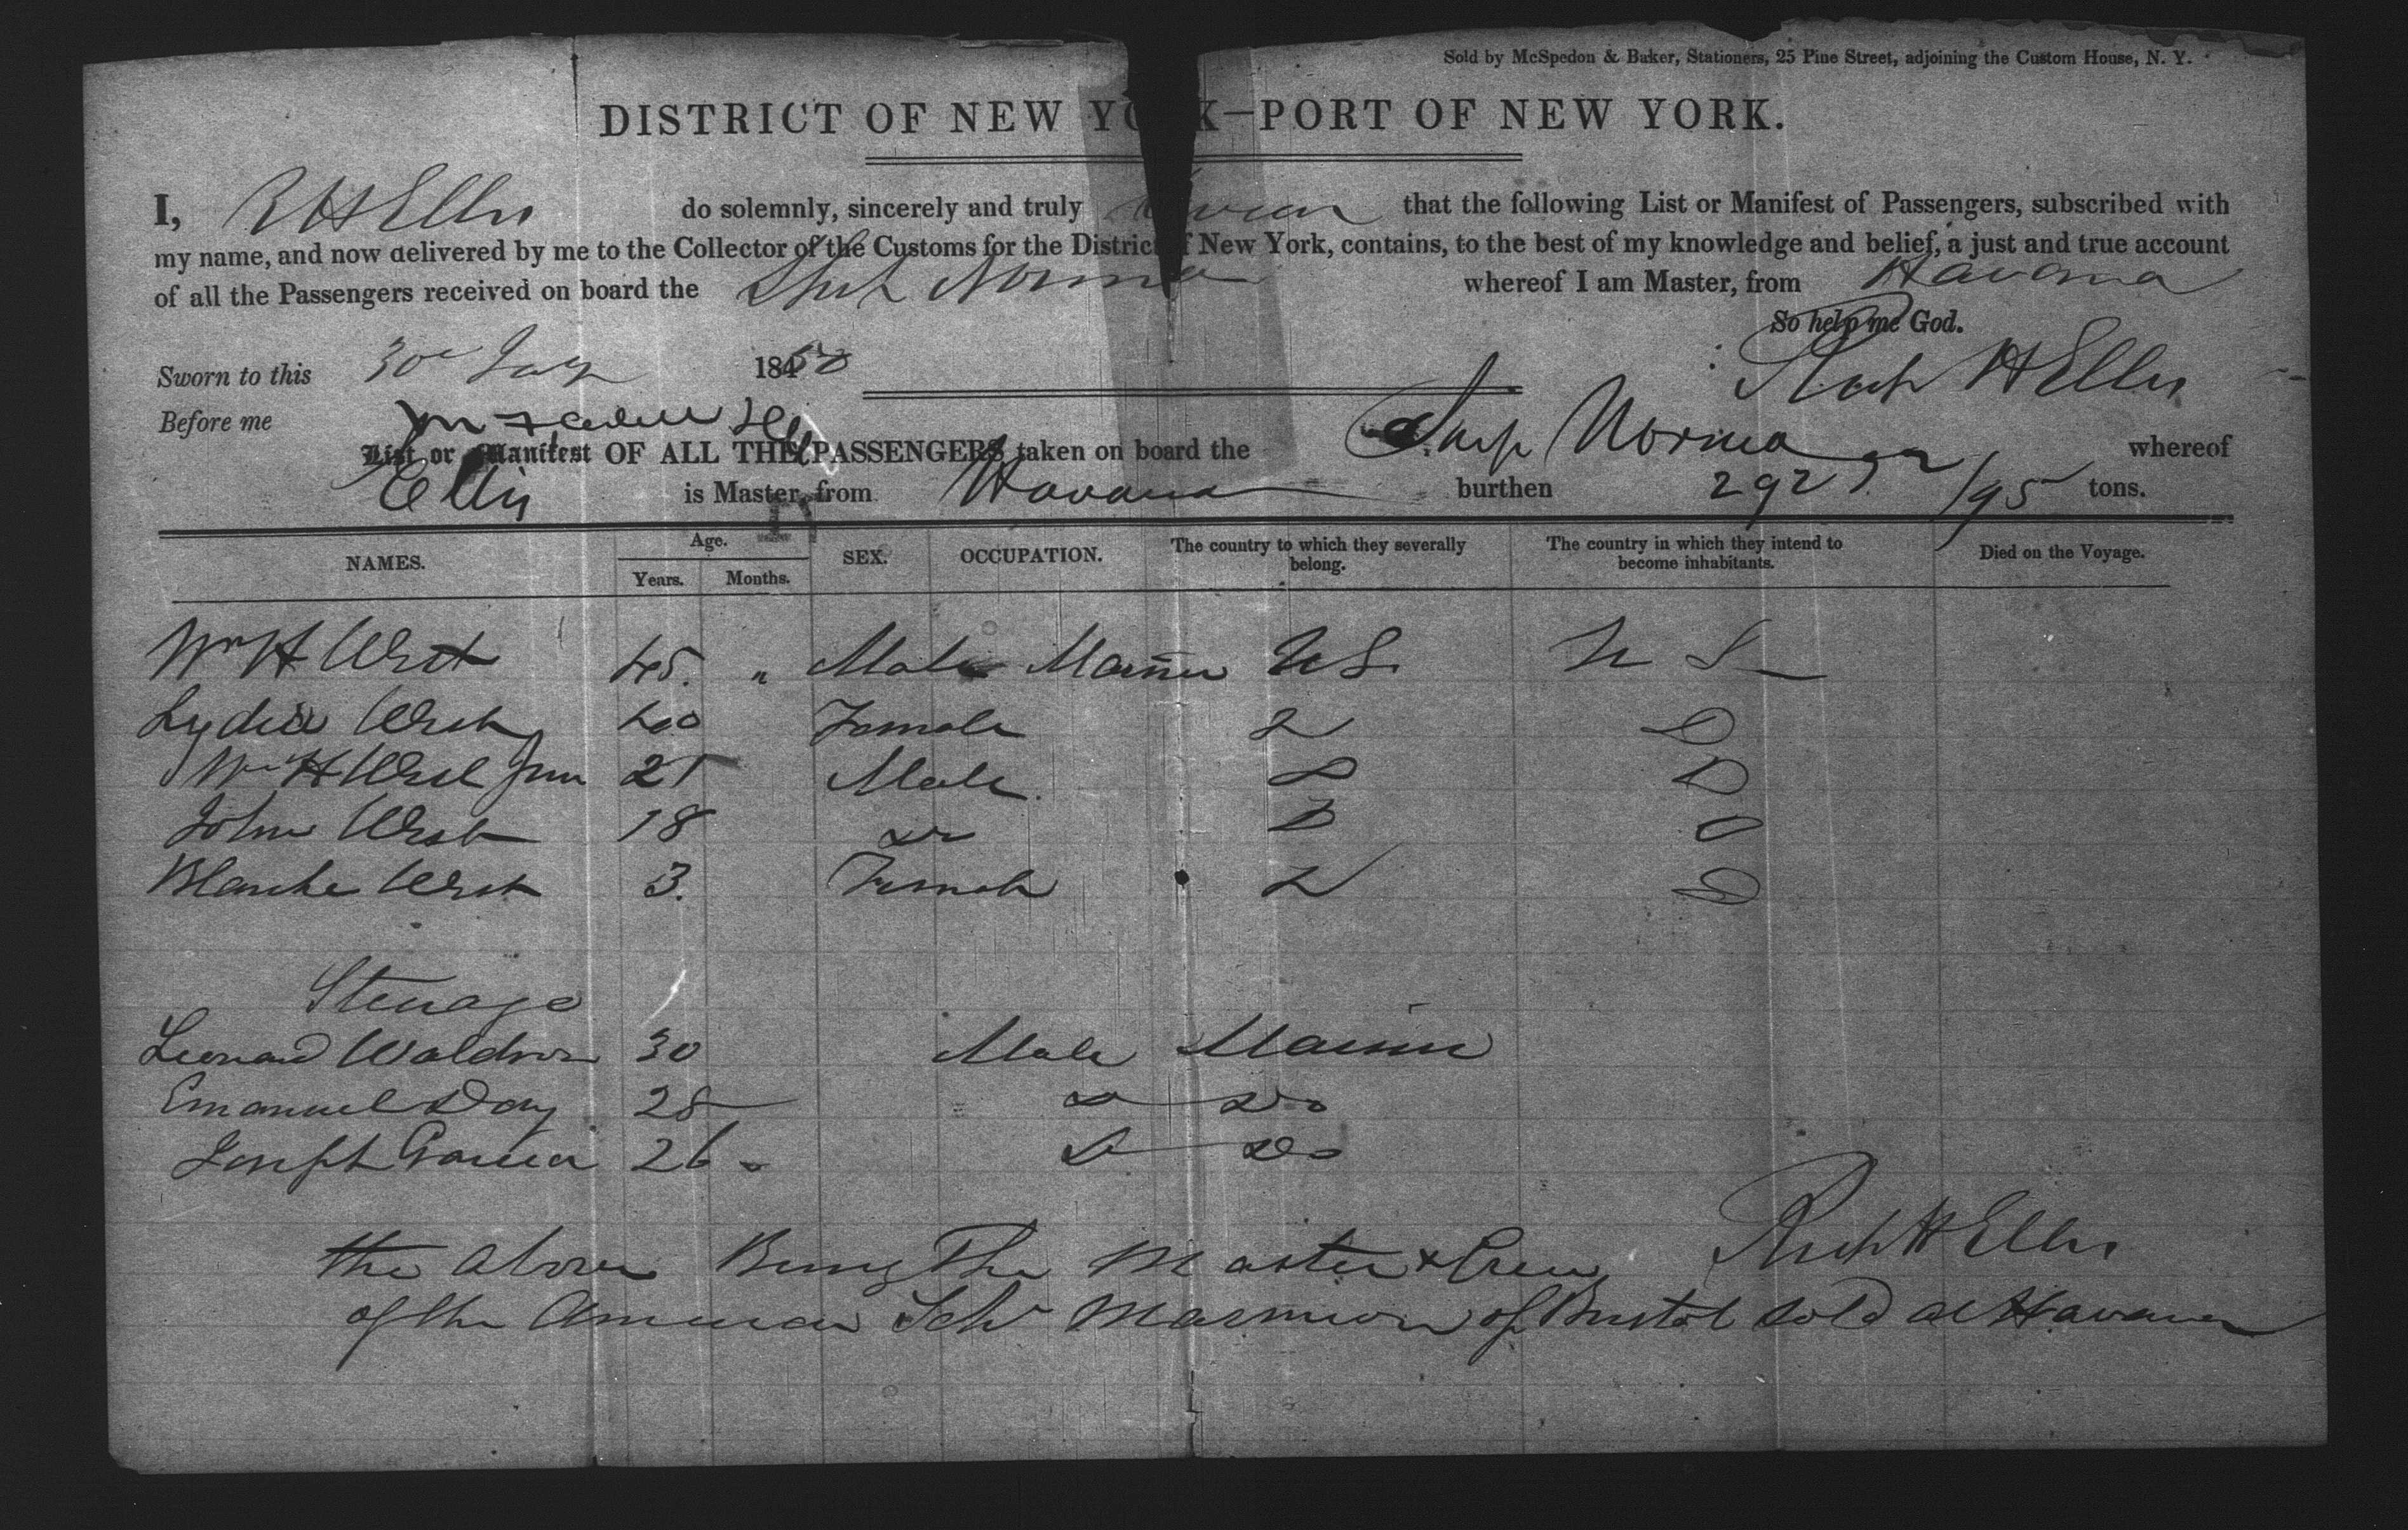 Sold by McSpedon & Baker, Stationers, 25 Pine Street, adjoining the Custom House, N. Y.
DISTRICT OF NEW YO K—PORT OF NEW YORK.
I, R H Ellis do solemnly, sincerely and truly that the following List or Manifest of Passengers, subscribed with
my name, and now delivered by me to the Collector of the Customs for the District of New York, contains, to the best of my knowledge and belief, a just and true account
of all the Passengers received on board the Norma whereof I am Master, from Havana
So help me God.
Sworn to this 30 1850
Rich H Ellis
Before me
List or Manifest OF ALL THE PASSENGERS taken on board the Norma whereof
Ellis is Master, from Havana burthen 292 /95 tons.
NAMES. Age. Years. Months. SEX. OCCUPATION. The country to which they severally belong. The country in which they intend to become inhabitants. Died on the Voyage.
Wm H West 45. " Male Mariner U S. U S
Lydia West 40 Female D D
Wm H West Jun 21 Male D D
John West 18 Do D D
Blanche West 3. Female D D
Steerage
Leonard Waldron 30 Male Mariner
Emanuel Day 28 D Do
Joseph Garcia 26 D Do
the above Being The Master & Crew Rich H Ellis
of the American Schr Marmion of Bristol sold at Havana